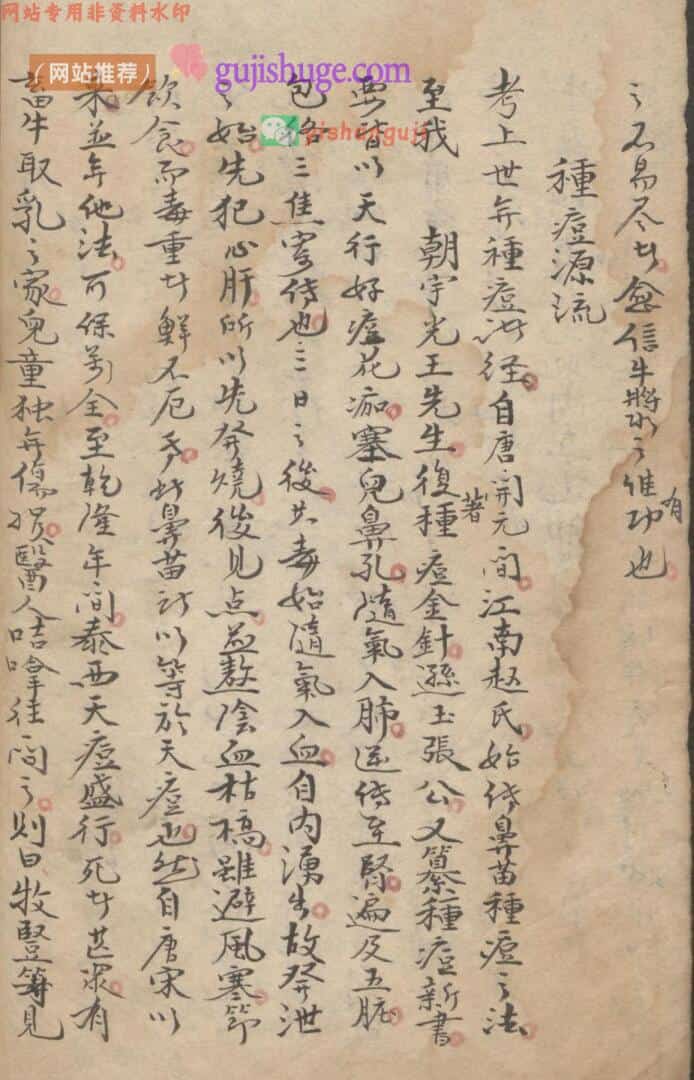 网站专用非资料水印
（网站推荐）
gujishuge.com
yishunguji
之不易尽者愈信牛漿之惟有功也
種痘源流
考上世無種痘諸经自唐開元间江南趙氏始传鼻苗種痘之法
至我　朝宇光王先生復著種痘金針遜玉張公又纂種痘新書
要皆以天行好痘花痂塞兒鼻孔隨氣入肺逆传至腎遍及五脏
包络三焦寄传也三日之後其毒始隨氣入血自内湧出故發泄
之始先犯心肝所以先發燒後見点益整陰血枯槁雖避風寒節
飲食而毒重者鮮不厄矣此鼻苗所以等於天痘也然自唐宋以
来並無他法可保萬全至乾隆年间泰西天痘盛行死者甚眾有
畜牛取乳之家兒童独無傷损醫人咭嗱往问之则曰牧豎等見